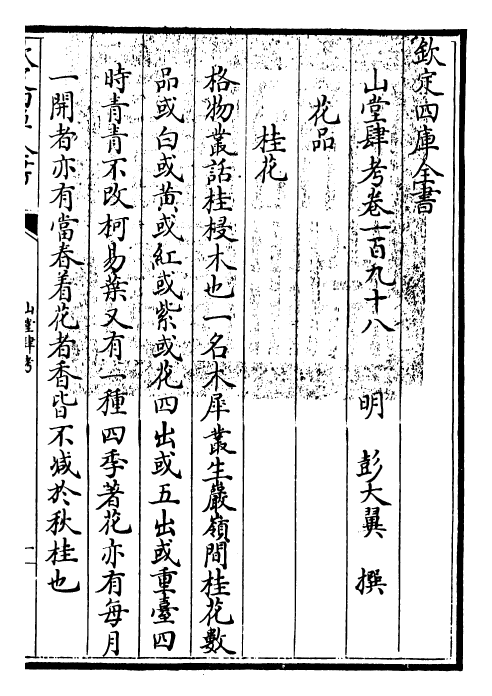 欽定四庫全書
山堂肆考卷一百九十八
明 彭大翼 撰
花品
桂花
格物叢話桂梫木也一名木犀叢生巖嶺間桂花數
品或白或黄或紅或紫或花四出或五出或重臺四
時青青不改柯易葉又有一種四季著花亦有每月
一開者亦有當春着花者香皆不减於秋桂也
山堂肆考
一